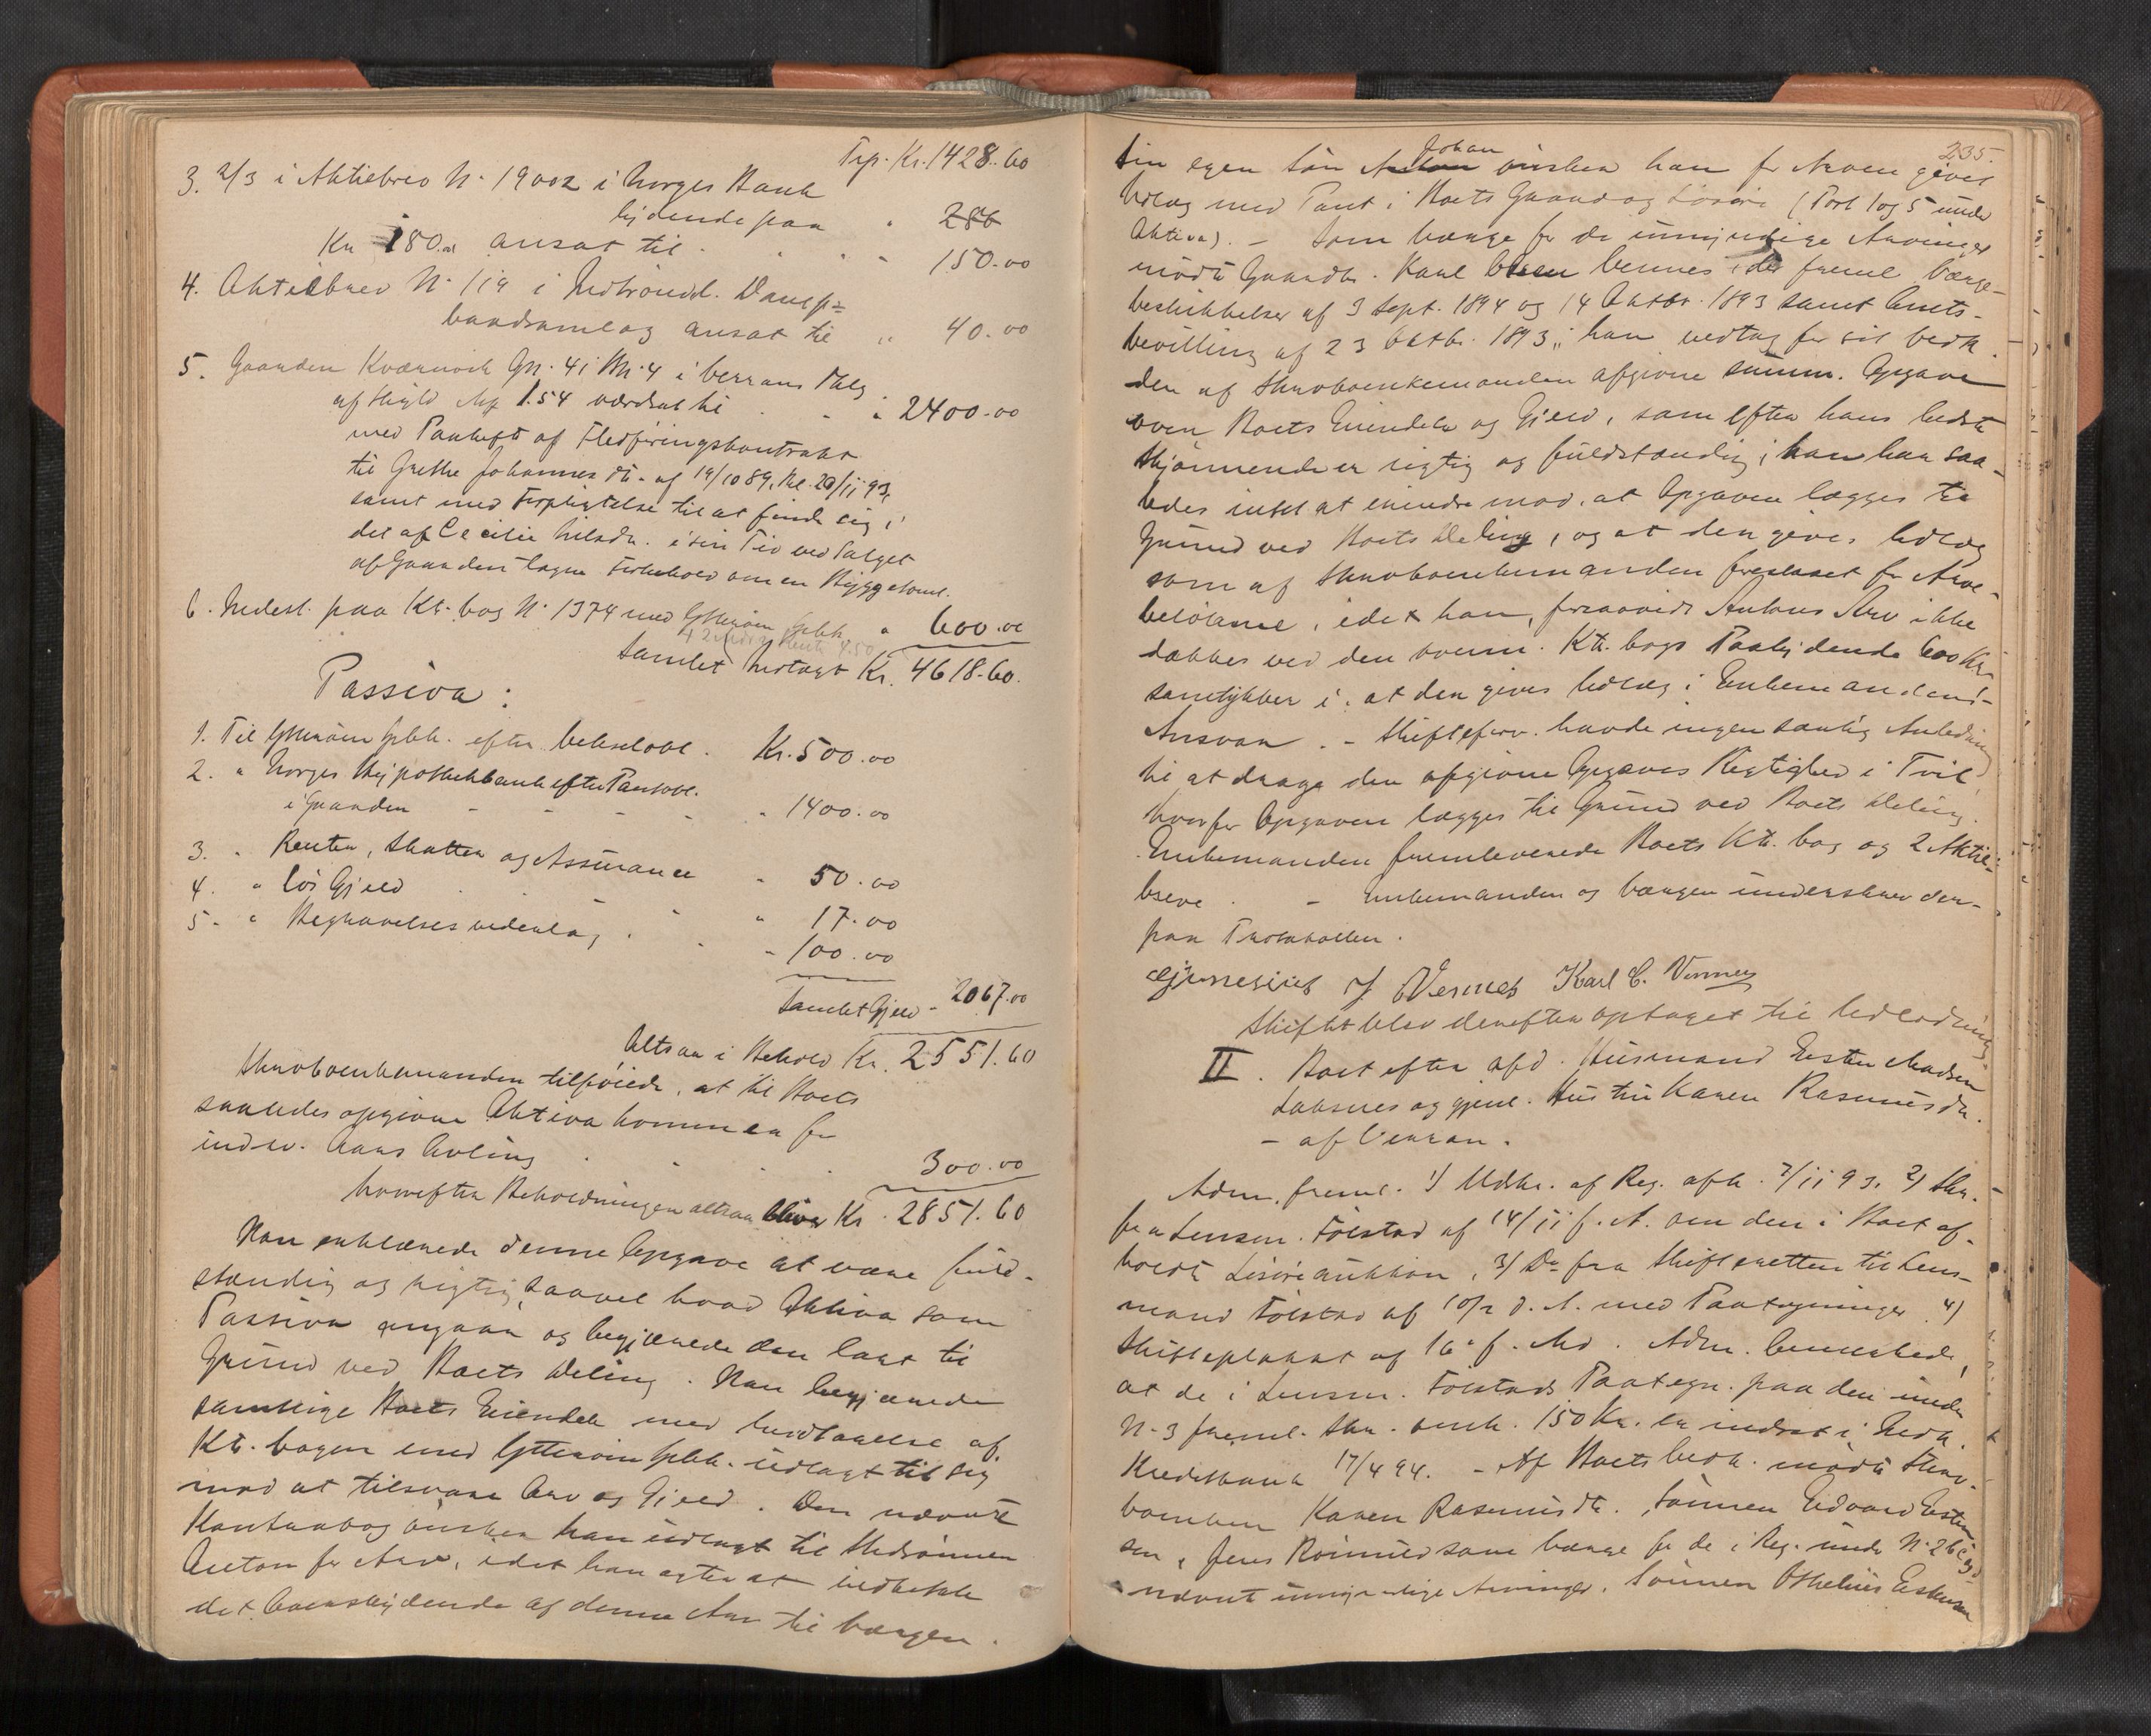 Trp. Kr. 1428.60
3. 2/3 i Aktiebrev N. 19002 i Norges Bank
lydende paa " 286
Kr 180.00 ansat til . . . " 150.00
4. Aktiebrev N. 119 i Indtrøndel. Damp=
baadsamlag ansat til " 40.00
5. Gaarden Kværnvik Gn. 41 Bn. 4 i Verrans Thlg
af Skyld Mk 1.54 værdsat til . . " 2400.00
med Panheft af Fledføringskontrakt
til Grethe Johannesdtr. af 19/10 89, Thl. 20/11 93,
samt med Forpligtelse til at finde sig i
det af Cecilie Nilsdr. i sin Tid ved Salget
af Gaarden tagne Forbehold om en Byggetomt.
6. Indest. paa Kt. bog N. 1374 med Ytterøen Spbk. " 600.00
Samlet Indtægt Kr. 4618.60.
Passiva :
1. Til Ytterøen Spbk. efter Vekselobl. Kr. 500.00
2. " Norges Hypothekbank efter Pantobl.
i Gaarden - - - - " 1400.00
3. " Renter, Skatter og Assurance " 50.00
4. " løs Gjeld . . " 17.00
5. " Begravelsesvederlag . . - 100.00
Samlet Gjeld - 2067.00
Altsaa i Behold Kr. 2551.60
Skrvboenkemanden tilføiede, at til Boets
saaledes opgivne Aktiva kommer for
indev. Aars Avling . . . 300.00
hvorefter Beholdningen altsaa bliver Kr. 2851.60
Han erklærede denne Opgave at være fuld-
stændig og rigtig, saavel hvad Aktiva som
Passiva angaar og begjærede den lagt til
Grund ved Boets Deling. Han begjærede
samtlige Boets Eiendele med Undtagelse af
Kt. bogen med Ytterøen Spbk. udlagt til sig
mod at tilsvare Arv og Gjeld. Den nævnte
Kontrabog ønsker han udlagt til Stedsønnen
Anton for Arv, idet han agter at indbetale
det Overskydende af denne Arv til Værgen.
235.
Sin egen Søn Johan ønsker han for Arven givet
Udlæg med Pant i Boets Gaard og Løsøre (Post 1 og 5 under
Aktiva). - Som Værge for de umyndige Arvinger
mødte Gaardbr. Karl Vennes, der freml. Værge-
beskikkelser af 3 Sept. 1894 og 14 Oktbr. 1893 samt Amts-
bevilling af 23 Oktbr. 1893; han vedtog for sit Vedk.
den af Skrvboenkemanden afgivne summ. Opgave
over Boets Eiendele og Gjeld, som efter hans bedste
Skjønnende er rigtig og fuldstændig; han har saa-
ledes intet at erindre mod, at Opgaven lægges til
Grund ved Boets Deling, og at der gives Udlæg
som af Skrvboenkemanden foreslaaet for Arve-
beløbene, idet han, forsaavidt Antons Arv ikke
dækkes ved den ovenn. Kt. bogs Paalydende 600 Kr.
samtykker i, at der gives Udlæg i Enkemandens
Ansvar. - Skifteforv. havde ingen særlig Anledning
til at drage den afgivne Opgaves Rigtighed i Tvil,
hvorfor Opgaven lægges til Grund ved Boets Deling.
Enkemanden fremleverede Boets Kt. bog og 2 Aktie-
breve. - Enkemanden og Værgen underskrev der-
paa Protokollen.
J Vennes Karl C. Vennes
Skiftet blev derefter optaget til Udlodning
II. Boet efter afd. Husmand Esten Madsen
Laksnes og gjenl. Hustru Karen Rasmusdtr.
- af Verran.
Adm. freml. 1) Udskr. af Reg. afh. 7/11 93. 2) Skr.
fra Lensm. Folstad af 14/11 f. A. om den i Boet af-
holdte Løsøreauktion, 3) Do fra Skifteretten til Lens-
mand Folstad af 10/2 d. A. med Paategninger 4)
Skifteplakat af 16 f. Md. Adm. bemærkede,
at de i Lensm. Folstads Paategn. paa den under
N. 3 freml. Skr. omh. 150 Kr. er indsat i Nordr.
Kreditbank 17/4 94. - Af Boets Vedk. mødte Skrv-
boenken Karen Rasmusdtr., Sønnen Edvard Esten
sen, Jens Rømuld som Værge for de i Reg. under N. 2 b c og d
nævnte umyndige Arvinger. Sønnen Othelius Estensen